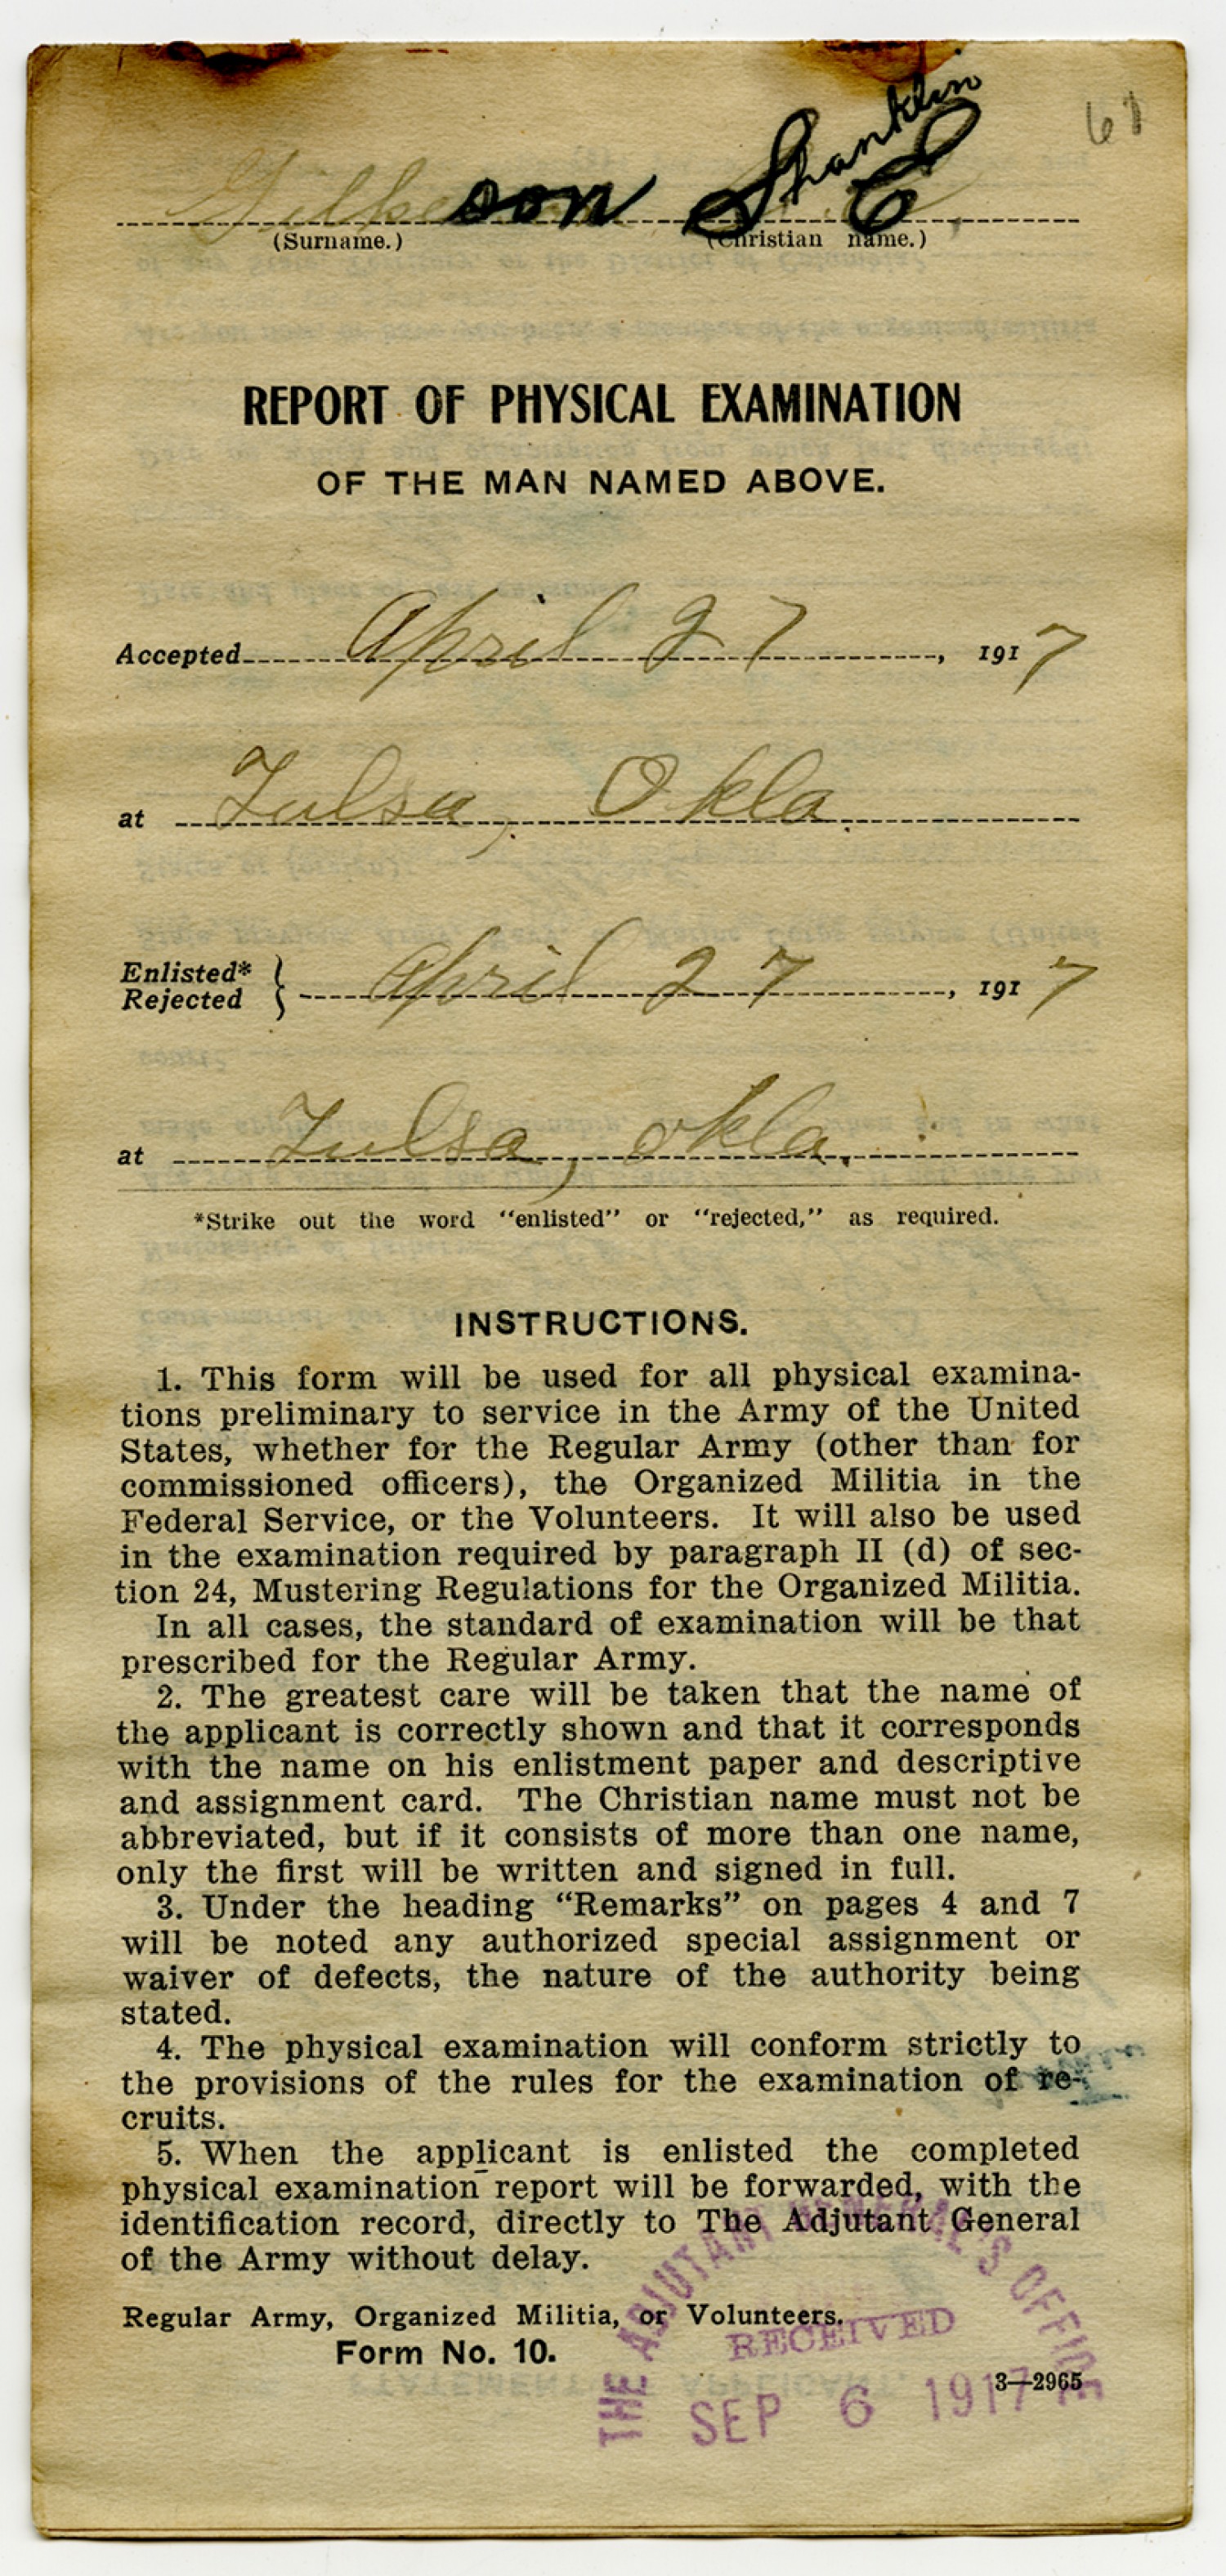 61
son Shanklin E
(Surname.) (Christian name.)
REPORT OF PHYSICAL EXAMINATION
OF THE MAN NAMED ABOVE.
Accepted April 27, 1917
at Tulsa, Okla.
Enlisted*
Rejected } April 27, 1917
at Tulsa, Okla.
*Strike out the word “enlisted” or “rejected,” as required.
INSTRUCTIONS.
1. This form will be used for all physical examina-
tions preliminary to service in the Army of the United
States, whether for the Regular Army (other than for
commissioned officers), the Organized Militia in the
Federal Service, or the Volunteers. It will also be used
in the examination required by paragraph II (d) of sec-
tion 24, Mustering Regulations for the Organized Militia.
In all cases, the standard of examination will be that
prescribed for the Regular Army.
2. The greatest care will be taken that the name of
the applicant is correctly shown and that it corresponds
with the name on his enlistment paper and descriptive
and assignment card. The Christian name must not be
abbreviated, but if it consists of more than one name,
only the first will be written and signed in full.
3. Under the heading “Remarks” on pages 4 and 7
will be noted any authorized special assignment or
waiver of defects, the nature of the authority being
stated.
4. The physical examination will conform strictly to
the provisions of the rules for the examination of re-
cruits.
5. When the applicant is enlisted the completed
physical examination report will be forwarded, with the
identification record, directly to The Adjutant General
of the Army without delay.
Regular Army, Organized Militia, or Volunteers.
Form No. 10.
3—2965
THE ADJUTANT GENERAL'S OFFICE
RECEIVED
SEP 6 1917